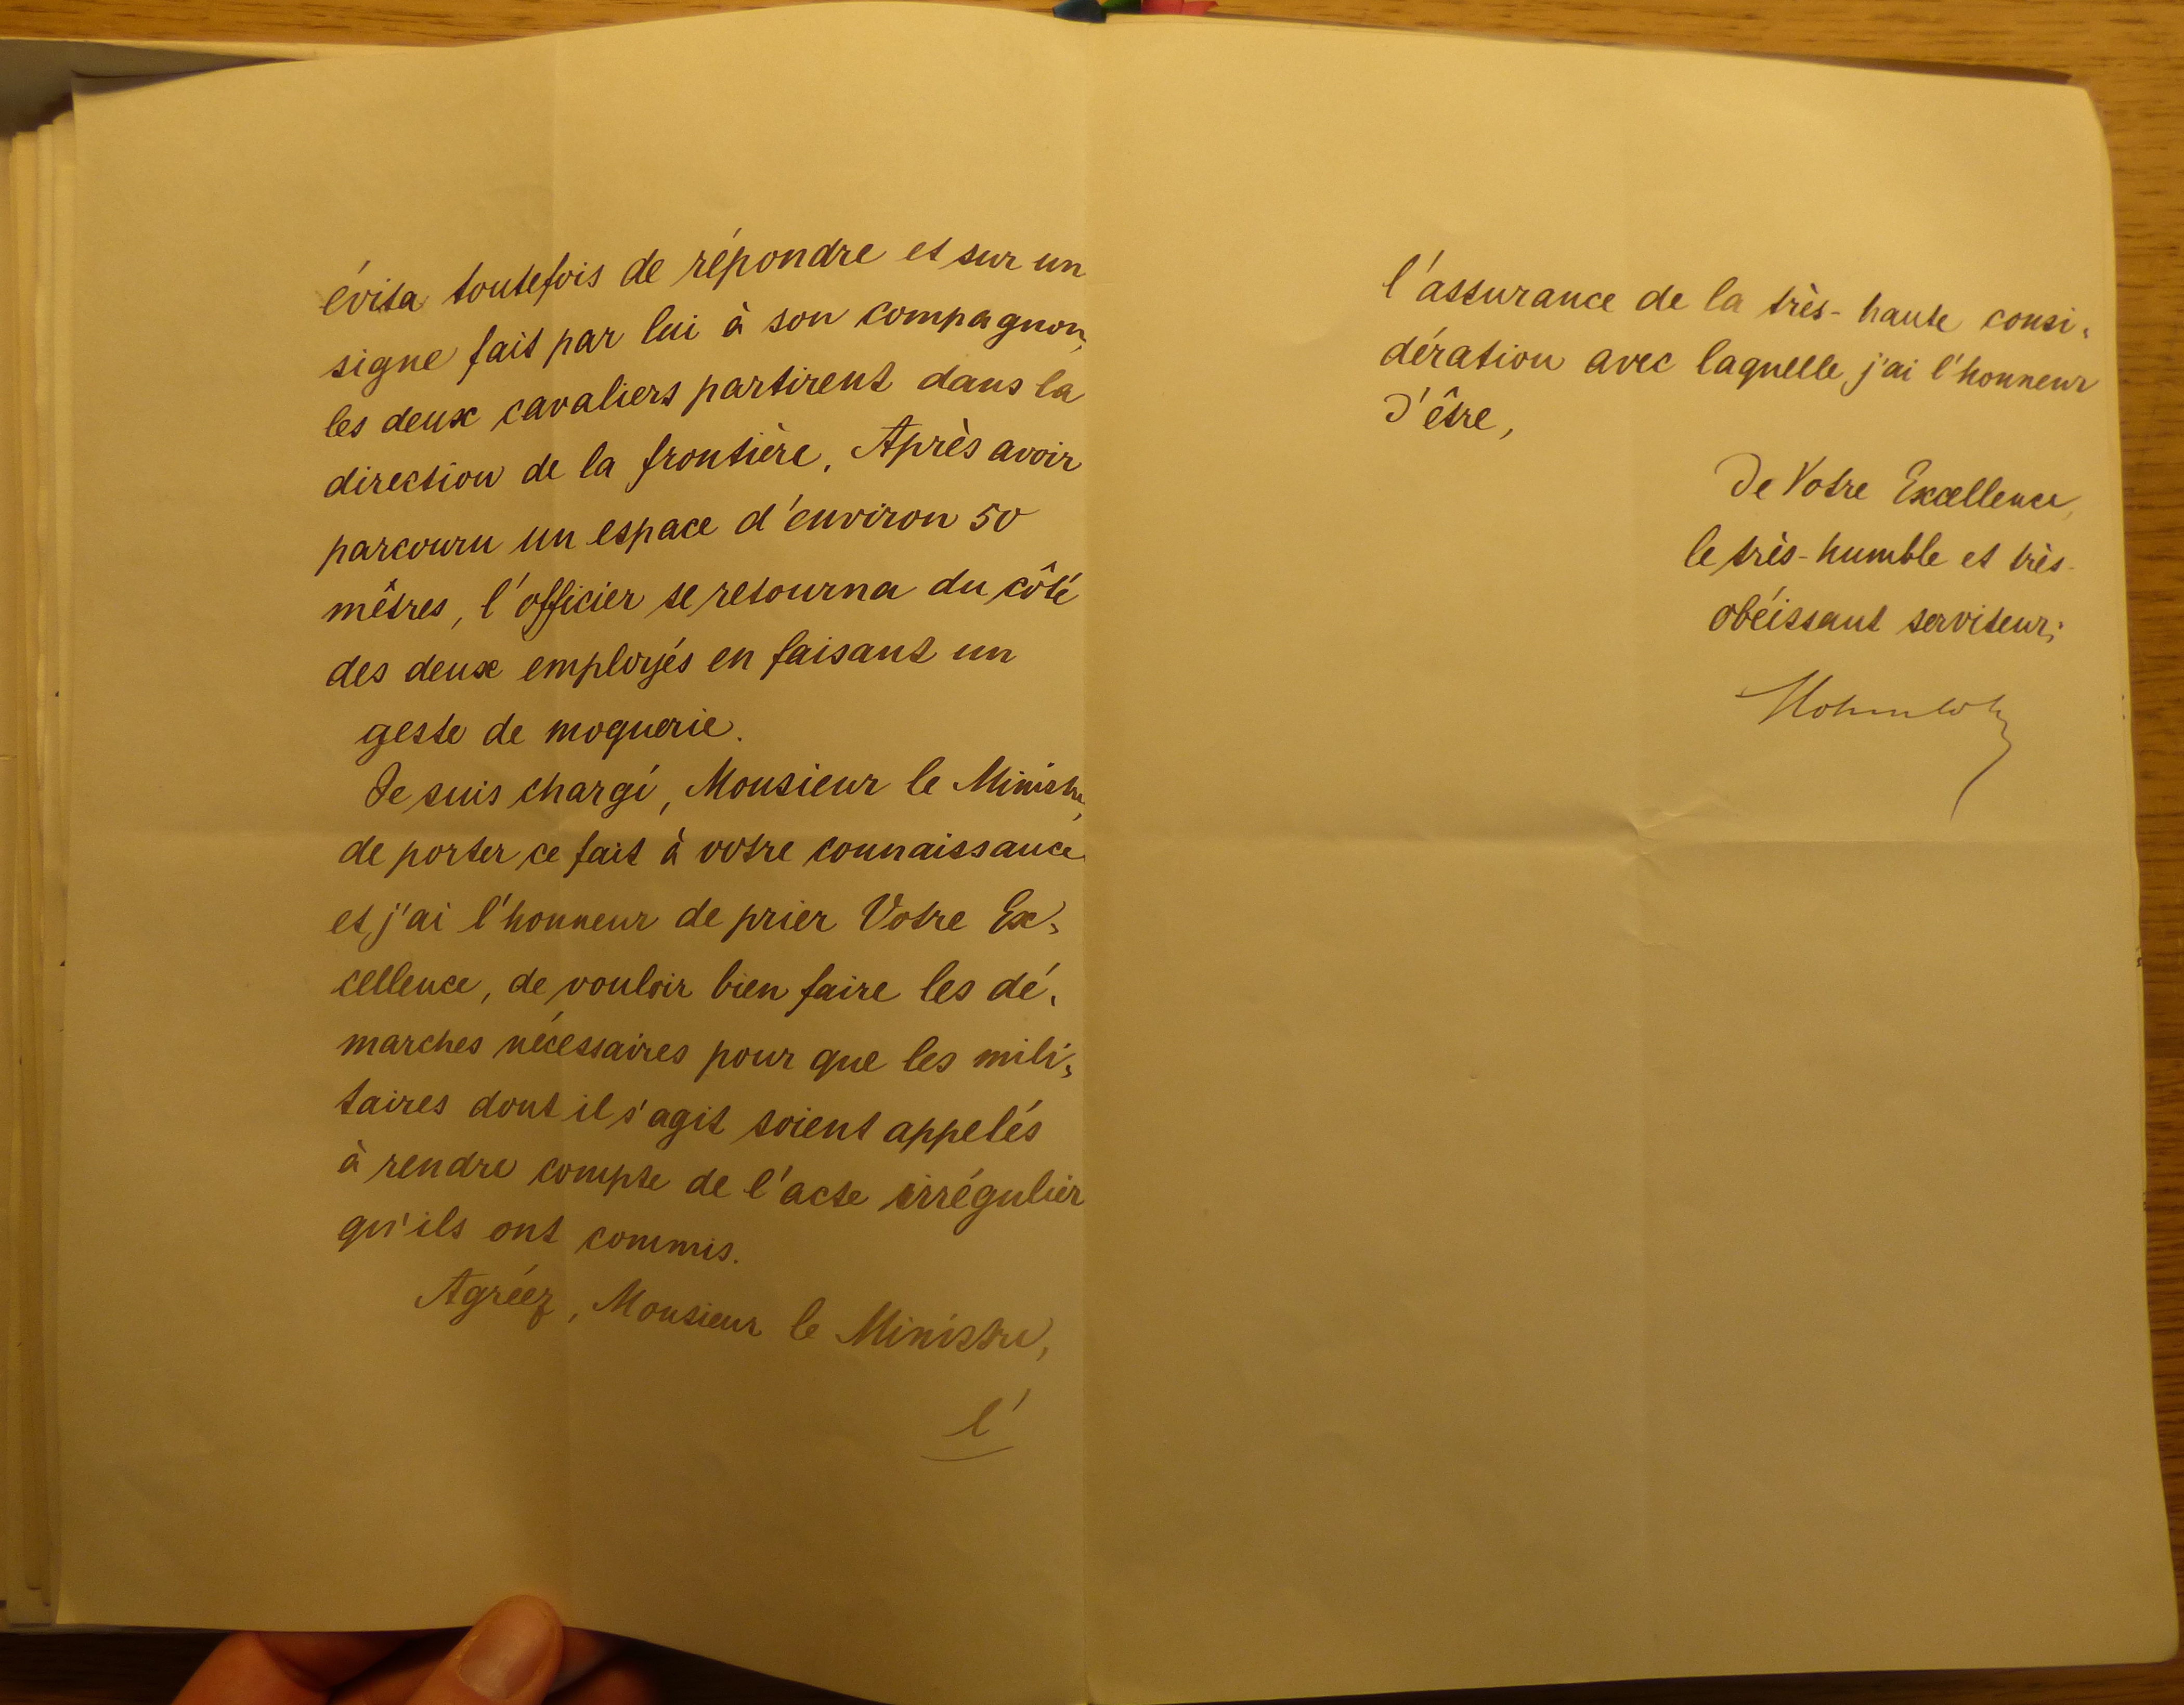 évita toutefois de répondre et sur un
signe fait par lui à son compagnon,
les deux cavaliers partirent dans la
direction de la frontière. Après avoir
parcouru un espace d'environ 50
mêtres, l'officier se retourna du côté
des deux employés en faisant un
geste de moquerie.
Je suis chargé, Monsieur le Ministre,
de porter ce fait à votre connaissance
et j'ai l'honneur de prier Votre Ex-
cellence, de vouloir bien faire les dé-
marches nécessaires pour que les mili-
taires dont il s'agit soient appelés
à rendre compte de l'acte irrégulier
qu'ils ont commis.
Agréez, Monsieur le Ministre,
l'
l'assurance de la très-haute consi-
dération avec laquelle j'ai l'honneur
d'être,
De Votre Excellence,
le très-humble et très-
obéissant serviteur;
Hohenlohe